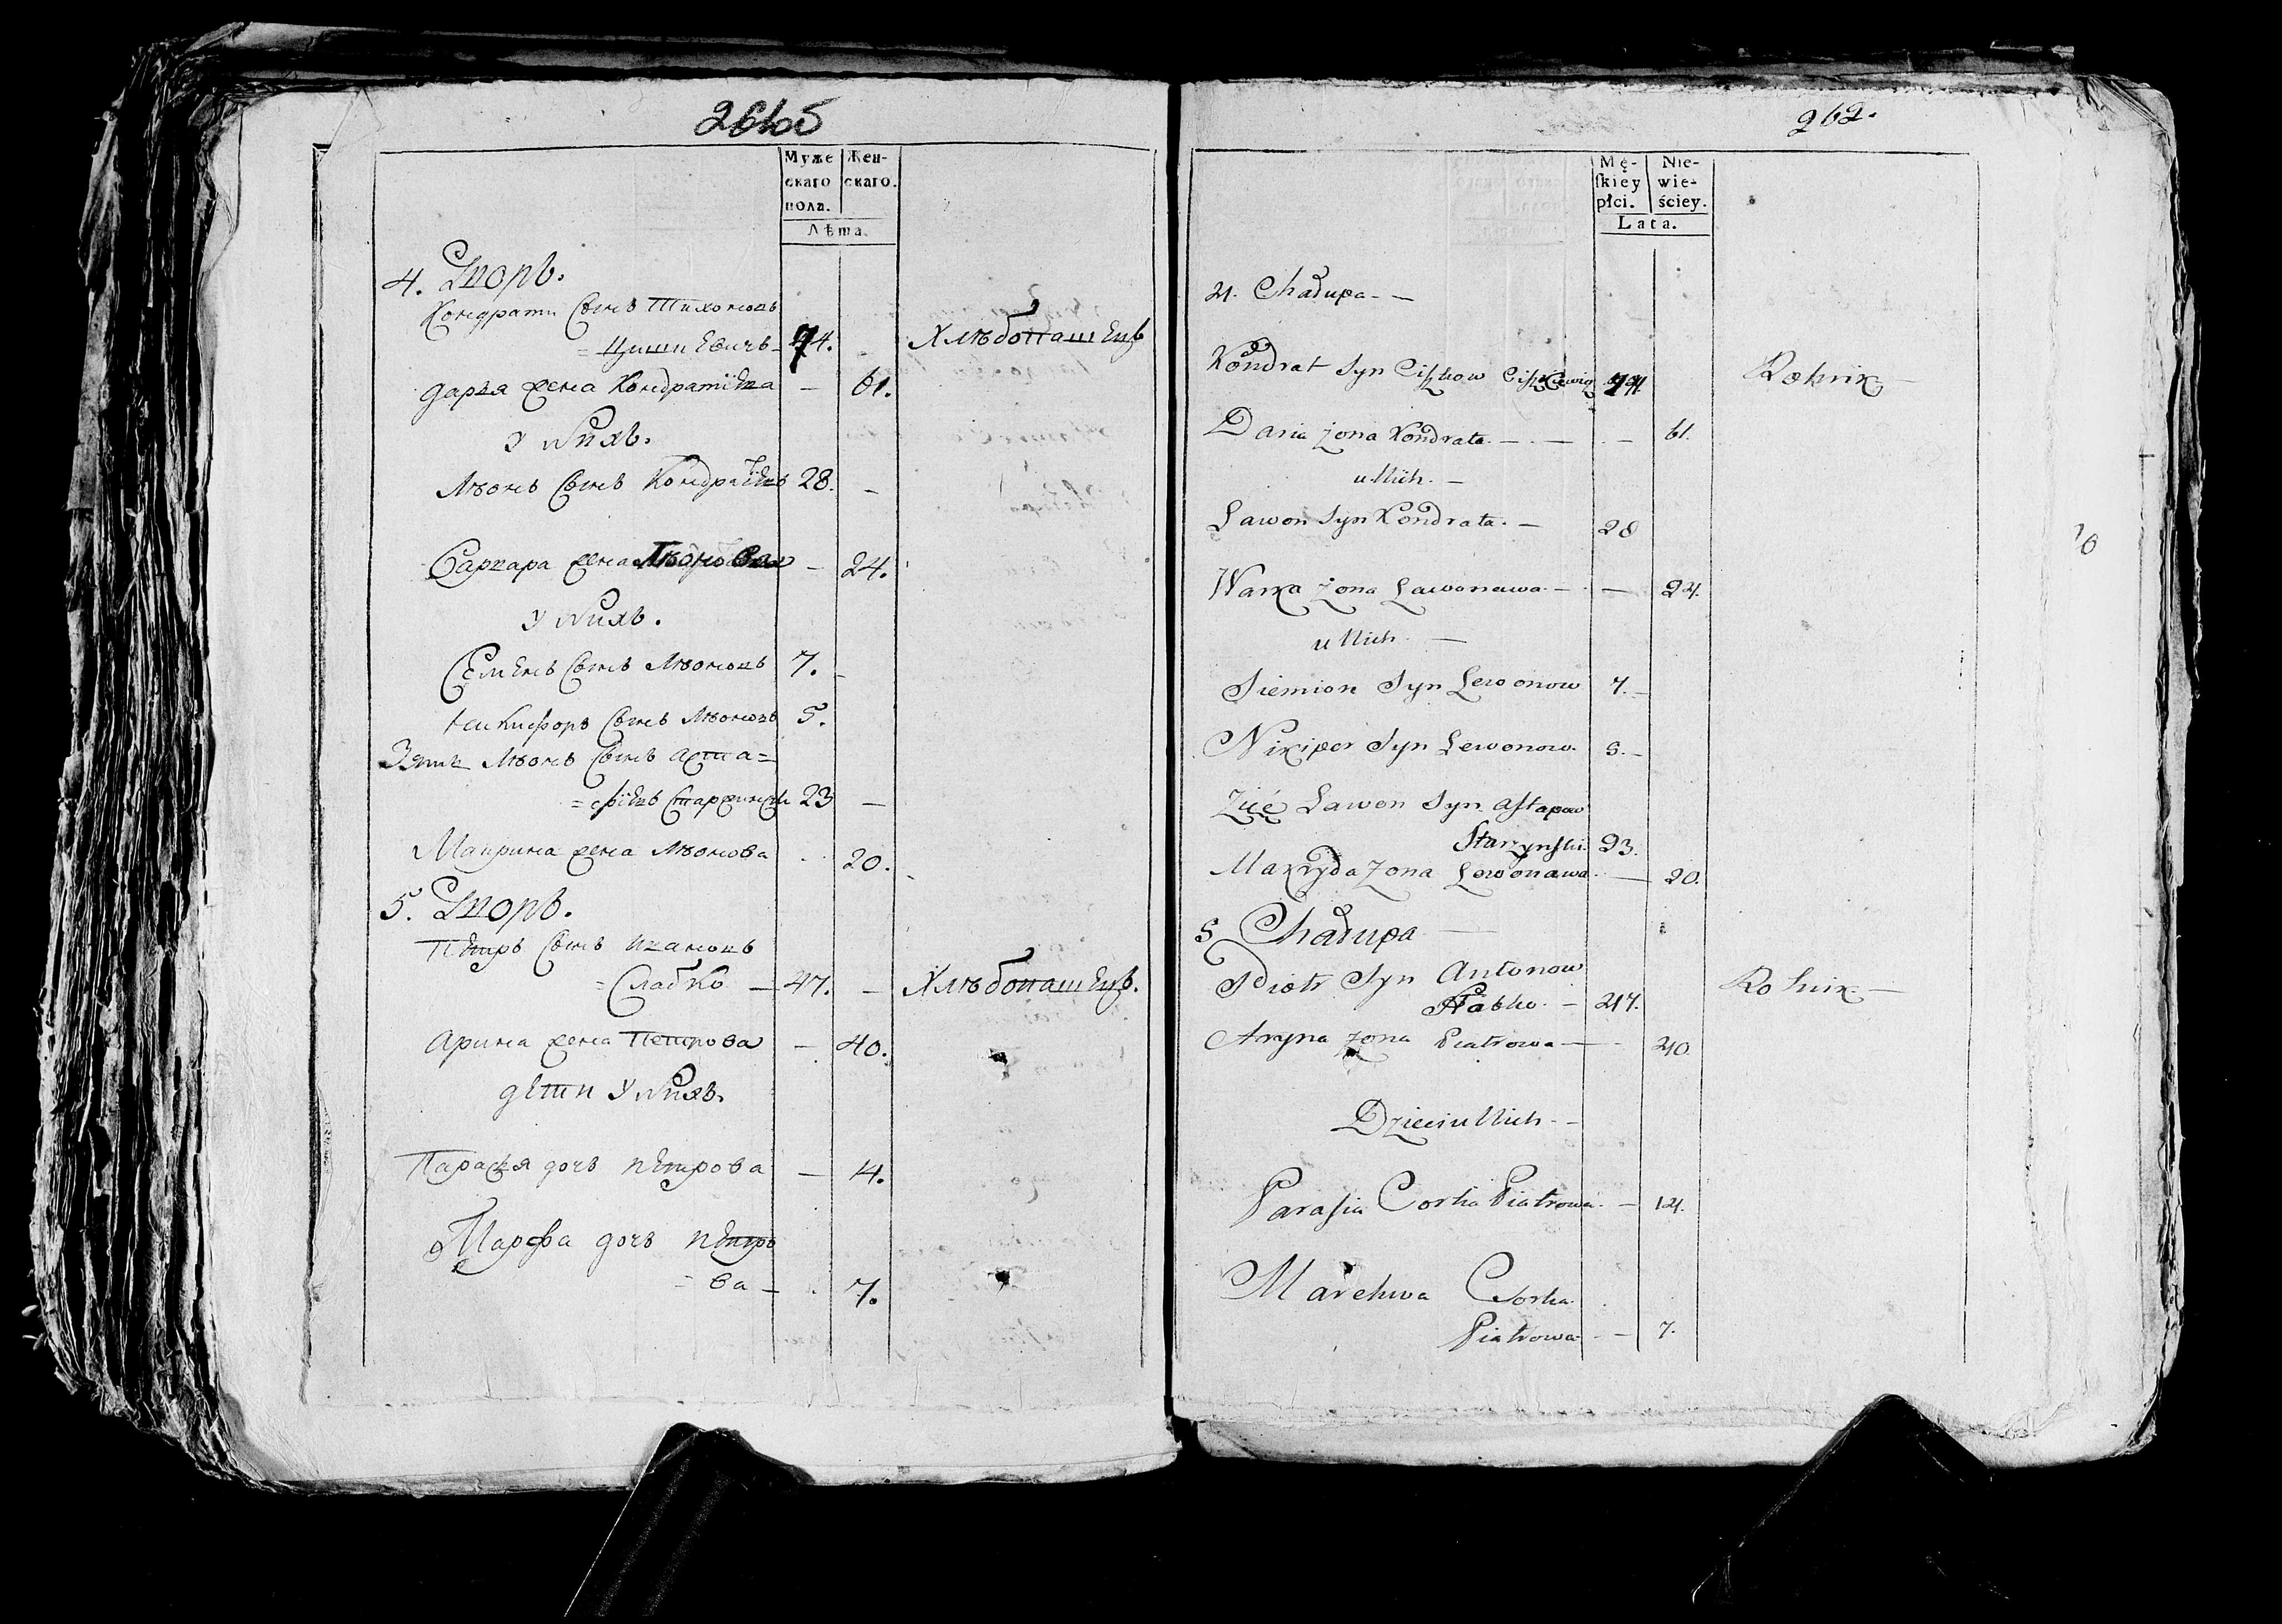 261об
Муже
скаго
пола.
Жен-
скаго.
Лѣта
4. Дворъ.
Кондрати Сынъ Тихоновъ
= Цишкевичъ 74. Хлѣбопашецъ
Дарья жена Кондратіева — 61.
У Нихъ.
Лвонъ Сынъ Кондратіевъ 28. —
Варвара жена Лвонова — 24.
У Нихъ.
Семенъ Сынъ Лвоновъ 7. —
Никифоръ Сынъ Лвоновъ 5.
Зять Лвонъ Сынъ Аста=
=фіевъ 23 —
Маврина жена Лвонова 20.
5. Дворъ.
Петръ Сынъ
= Слабко — 47. — Хлѣбопашецъ.
Арина жена Петрова — 40.
Дети У Нихъ.
Параскя дочь Петрова — 14.
Марфа дочь Петро
= ва — 7.
262.
Mę-
ſkiey
płci.
Nie-
wie-
ściey.
Lata.
4. Chałupa. —
Kondrat Syn Ciſzkow Ciſzkiewicz 74 Rolnik —
Daria Zona Kondrata. — — — 61.
u Nich. —
Lawon Syn Kondrata. — 28
Warka Zona Lawonawa. — — 24.
u Nich. —
Siemion Syn Lewonow 7. —
Nikiper Syn Lewonow. 5. —
Zięć Lawon Syn Aſtapow
Starzynſki. 23.
Makryda Zona Lewonawa. — 20.
5 Chałupa —
Piotr Syn Antonow
Słabko. — 47. Rolnik —
Aryna Zona Piatrowa — 40.
Dzieci u Nich. —
Paraſia Corka Piatrowa. — 14.
Marchwa Corka
Piatrowa — 7.